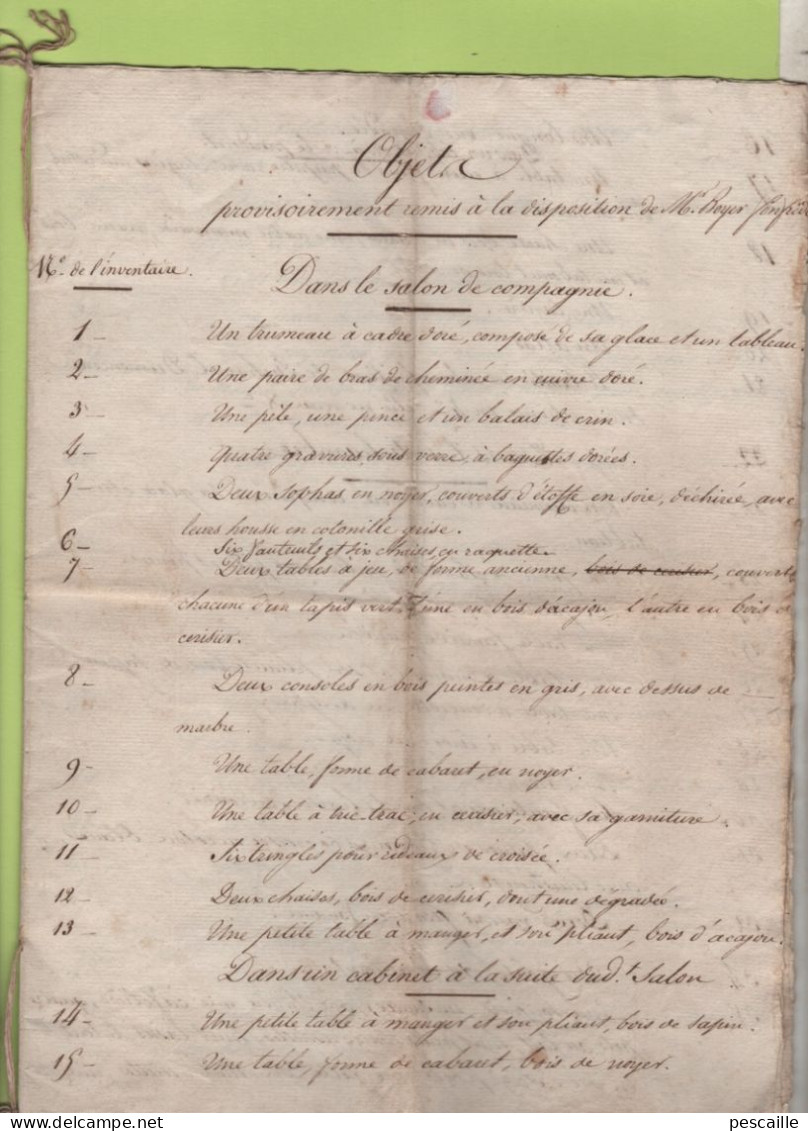 Objets
provisoirement remis à la disposition de Mr. Boyer
No. de l'inventaire.
Dans le salon de compagnie.
1 — Un trumeau à cadre doré, composé de sa glace et un tableau.
2 — Une paire de bras de cheminée en cuivre doré.
3 — Une pèle, une pince et un balais de crin.
4 — Quatre gravures, sous verre, à baguettes dorées.
5 — Deux sophas, en noyer, couverts d'étoffe en soie, déchirée, avec
leurs housse en cotonille grise.
6 — Six fauteuils et six chaises, en raquette.
7 — Deux tables à jeu, de forme ancienne, bois de cerisier, couverts
chacune d'un tapis vert, l'une en bois d'acajou, l'autre en bois de
cerisier.
8 — Deux consoles en bois peintes en gris, avec dessus de
marbre.
9 — Une table, forme de cabaret, en noyer.
10 — Une table à tric-trac, en cerisier, avec sa garniture.
11 — Six tringles pour rideaux de croisée.
12 — Deux chaises, bois de cerisier, dont une dégradée.
13 — Une petite table à manger, et son pliant, bois d'acajou.
Dans un cabinet à la suite dud.t Salon
14 — Une petite table à manger et son pliant, bois de sapin.
15 — Une table, forme de cabaret, bois de noyer.
pescaille